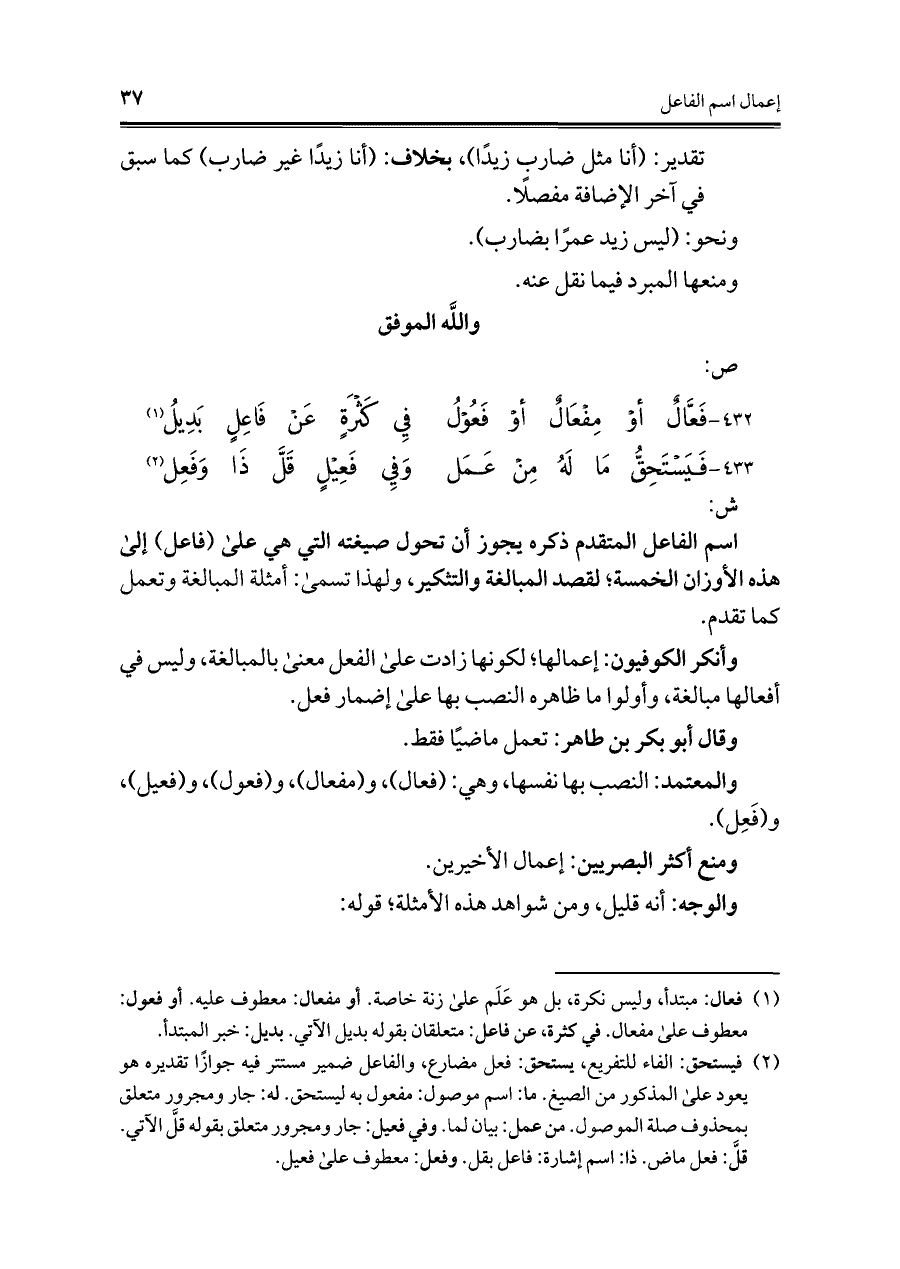 إعمال اسم الفاعل ٣٧
تقدير: (أنا مثل ضارب زيدًا)، بخلاف: (أنا زيدًا غير ضارب) كما سبق
في آخر الإضافة مفصلًا.
ونحو: (ليس زيد عمرًا بضارب).
ومنعها المبرد فيما نقل عنه.
واللَّه الموفق
ص:
٤٣٢-فَعَّالٌ أوْ مِفْعَالٌ أوْ فَعُوْلُ فِي كَثْرَةٍ عَنْ فَاعِلٍ بَدِيلُ(١)
٤٣٣-فَيَسْتَحِقُّ مَا لَهُ مِنْ عَمَل وَفِي فَعِيْلٍ قَلَّ ذَا وَفَعِل(٢)
ش:
اسم الفاعل المتقدم ذكره يجوز أن تحول صيغته التي هي علىٰ (فاعل) إلىٰ
هذه الأوزان الخمسة؛ لقصد المبالغة والتثكير، ولهذا تسمىٰ: أمثلة المبالغة وتعمل
كما تقدم.
وأنكر الكوفيون: إعمالها؛ لكونها زادت علىٰ الفعل معنىٰ بالمبالغة، وليس في
أفعالها مبالغة، وأولوا ما ظاهره النصب بها علىٰ إضمار فعل.
وقال أبو بكر بن طاهر: تعمل ماضيًا فقط.
والمعتمد: النصب بها نفسها، وهي: (فعال)، و(مفعال)، و(فعول)، و(فعيل)،
و(فَعِل).
ومنع أكثر البصريين: إعمال الأخيرين.
والوجه: أنه قليل، ومن شواهد هذه الأمثلة؛ قوله:
(١) فعال: مبتدأ، وليس نكرة، بل هو عَلَم علىٰ زنة خاصة. أو مفعال: معطوف عليه. أو فعول:
معطوف علىٰ مفعال. في كثرة، عن فاعل: متعلقان بقوله بديل الآتي. بديل: خبر المبتدأ.
(٢) فيستحق: الفاء للتفريع، يستحق: فعل مضارع، والفاعل ضمير مستتر فيه جوازًا تقديره هو
يعود علىٰ المذكور من الصيغ. ما: اسم موصول: مفعول به ليستحق. له: جار ومجرور متعلق
بمحذوف صلة الموصول. من عمل: بيان لما. وفي فعيل: جار ومجرور متعلق بقوله قلَّ الآتي.
قلَّ: فعل ماض. ذا: اسم إشارة: فاعل بقل. وفعل: معطوف علىٰ فعيل.